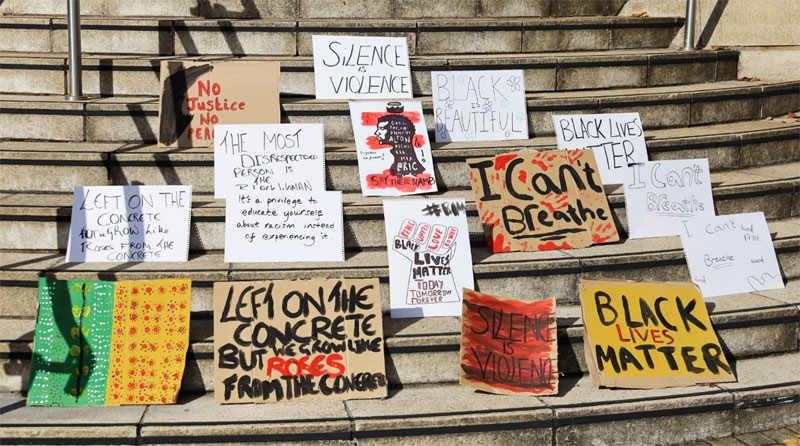 SiLENCE
is
VIOLENCE
NO
Justice
NO
PEACE
BLACK
is
BEAUTIFUL
ALTON
ERIC
SAY THEiR NAMES
THE MOST
DISRESPECTED
PERSON is
THE
BLACK WOMAN
BLACK LIVES
MATTER
I Can't
Breathe
I Can't
Breathe
LEFT ON THE
CONCRETE
But WE GROW LIKE
ROSES FROM THE
CONCRETE
It's a privilege to
educate yourself
about racism instead
of experiencing it.
#BLM
PEACE
UNITY
LOVE
POWER
BLACK
LIVES
MATTER
TODAY
TOMORROW
FOREVER
I Can't
Breathe
LEFT ON THE
CONCRETE
BUT WE GROW LIKE
ROSES
FROM THE CONCRETE
SiLENCE
iS
ViOLENCE
BLACK
LIVES
MATTER